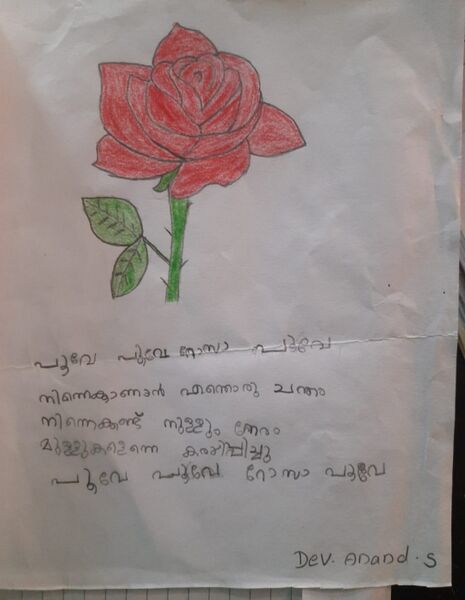 പൂവേ പൂവേ റോസാ പൂവേ
നിന്നെകാണാൻ എന്തൊരു ചന്തം
നിന്നെകണ്ട് നുള്ളും നേരം
മുള്ളുകളെന്നെ കരയിപ്പിച്ചു
പൂവേ പൂവേ റോസാ പൂവേ
Dev. Anand. S